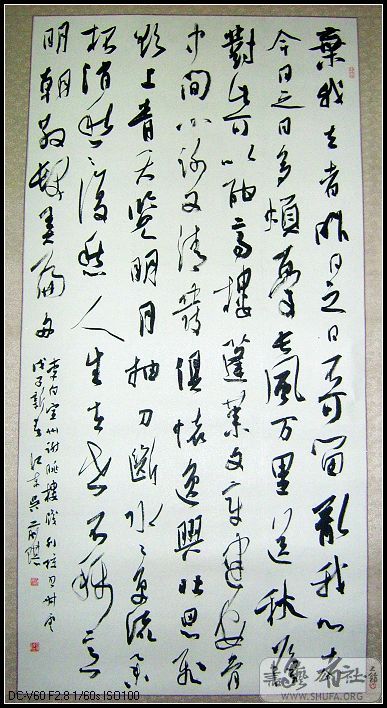 棄我去者昨日之日不可留亂我心者
今日之日多煩憂長風万里送秋雁
對此可以酣高樓蓬萊文章建安骨
中間小謝又清發俱懷逸興壯思飛
欲上青天覽明月抽刀斷水〻更流举
杯消愁〻復愁人生在世不稱意
明朝散髮弄扁舟
李白宣州谢朓樓餞別校書叔雲
戊子新春江东吴
WWW.SHUFA.ORG
DC-V60 F2.8 1/60s ISO100